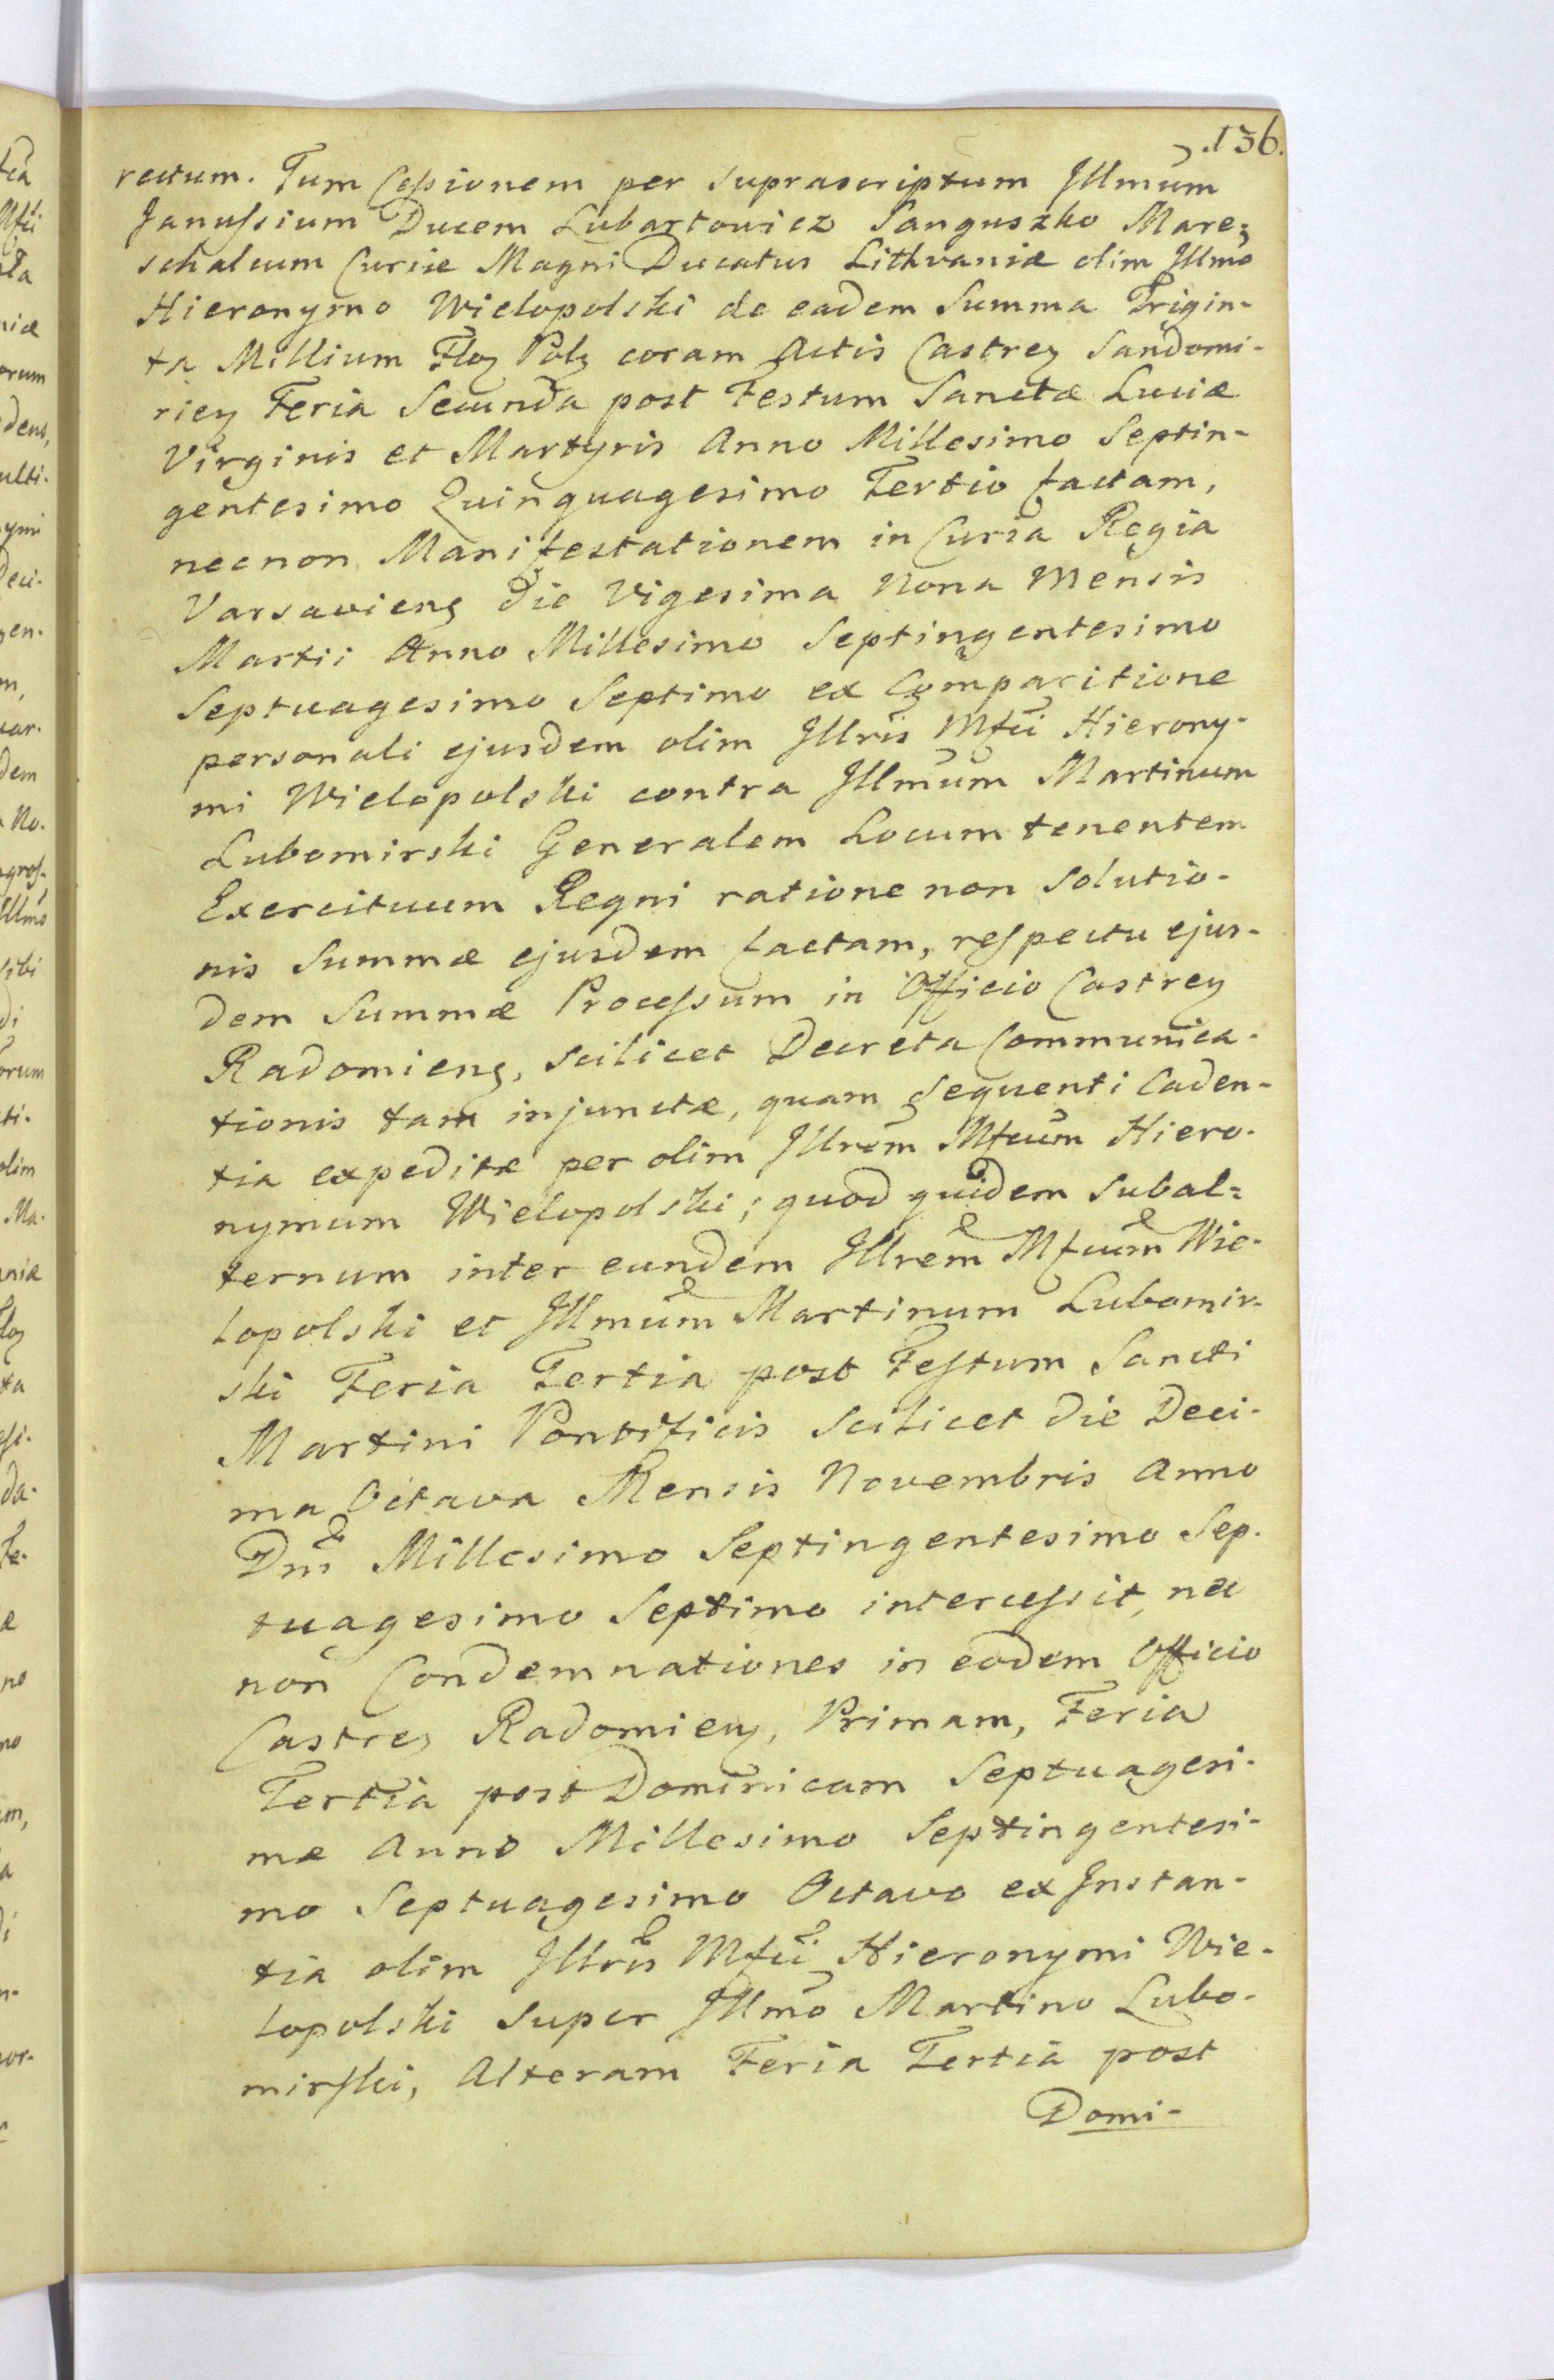 .136.
rectum. Tum Cessionem per suprascriptum Illmum
Janussium Ducem Lubartowicz Sanguszko Mare=
schalcum Curiæ Magni Ducatus Lithvaniæ olim Illmo
Hieronymo Wielopolski de eadem Summa Trigin-
ta Millium Floȝ Polȝ coram Actis Castreȝ Sandomi-
rieȝ Feria Secunda post Festum Sanctæ Luciæ
Virginis et Martyris Anno Millesimo Septin-
gentesimo Quinquagesimo Tertio factam,
necnon Manifestationem in Curia Regia
Varsavienȝ die Vigesima Nona Mensis
Martii Anno Millesimo Septingentesimo
Septuagesimo Septimo ex Comparitione
personali ejusdem olim Illris Mfci Hierony-
mi Wielopolski contra Illmum Martinum
Lubomirski Generalem Locum tenentem
Exercituum Regni ratione non solutio-
nis Summæ ejusdem factam, respectu ejus-
dem Summæ Processum in Officio Castreȝ
Radomienȝ, scilicet Decreta Communica-
tionis tam injunctæ, quam sequenti Caden-
tia expeditæ per olim Illrem Mfcum Hiero-
nymum Wielopolski; quod quidem Subal=
ternum inter eundem Illrem Mfcum Wie-
lopolski et Illmum Martinum Lubomir-
ski Feria Tertia post Festum Sancti
Martini Pontificis scilicet die Deci-
ma Octava Mensis Novembris Anno
Dni Millesimo Septingentesimo Sep-
tuagesimo Septimo intercessit, nec
non Condemnationes in eodem Officio
Castreȝ Radomienȝ, Primam, Feria
Tertia post Dominicam Septuagesi-
mæ Anno Millesimo Septingentesi-
mo Septuagesimo Octavo ex Instan-
tia olim Illris Mfci Hieronymi Wie-
lopolski super Illmo Martino Lubo-
mirski, Alteram Feria Tertia post
Domi-